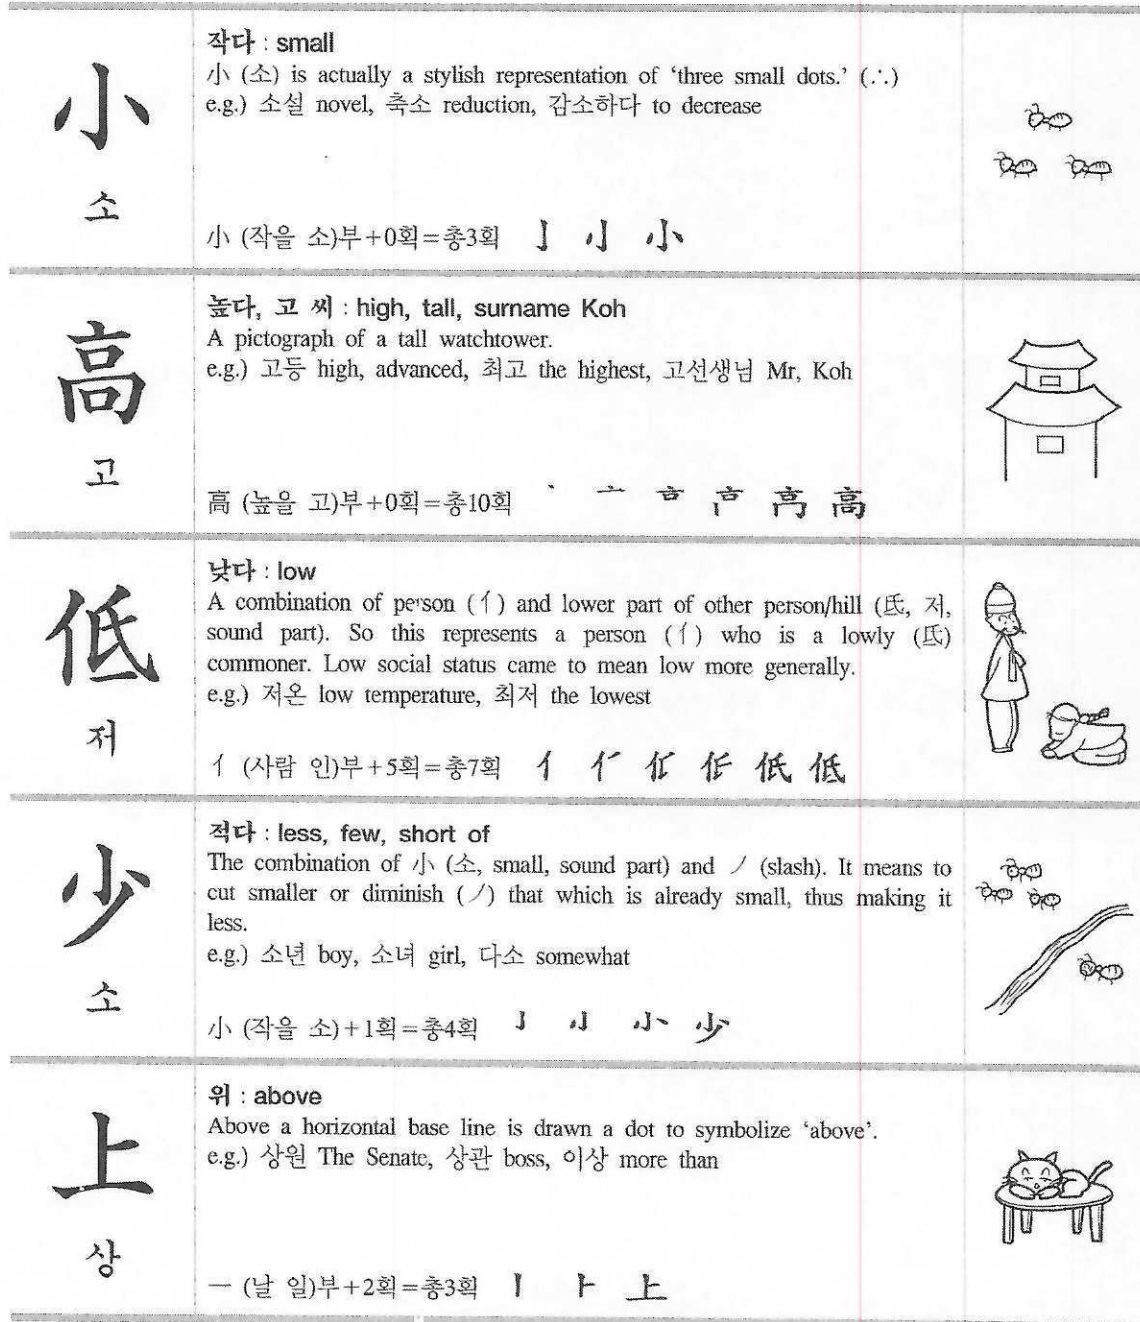 小
소
작다 : small
小 (소) is actually a stylish representation of ‘three small dots.’ (∴)
e.g.) 소설 novel, 축소 reduction, 감소하다 to decrease
小 (작을 소)부+0획=총3획 亅 小
高
고
높다, 고 씨 : high, tall, surname Koh
A pictograph of a tall watchtower.
e.g.) 고등 high, advanced, 최고 the highest, 고선생님 Mr, Koh
高 (높을 고)부+0획=총10획 丶 亠 高
低
저
낮다 : low
A combination of person (亻) and lower part of other person/hill (氐, 저,
sound part). So this represents a person (亻) who is a lowly (氐)
commoner. Low social status came to mean low more generally.
e.g.) 저온 low temperature, 최저 the lowest
亻 (사람 인)부+5획=총7획 亻 低 低
少
소
적다 : less, few, short of
The combination of 小 (소, small, sound part) and ノ (slash). It means to
cut smaller or diminish (ノ) that which is already small, thus making it
less.
e.g.) 소년 boy, 소녀 girl, 다소 somewhat
小 (작을 소)+1획=총4획 亅 小 少
上
상
위 : above
Above a horizontal base line is drawn a dot to symbolize ‘above’.
e.g.) 상원 The Senate, 상관 boss, 이상 more than
一 (날 일)부+2획=총3획 丨 ⺊ 上